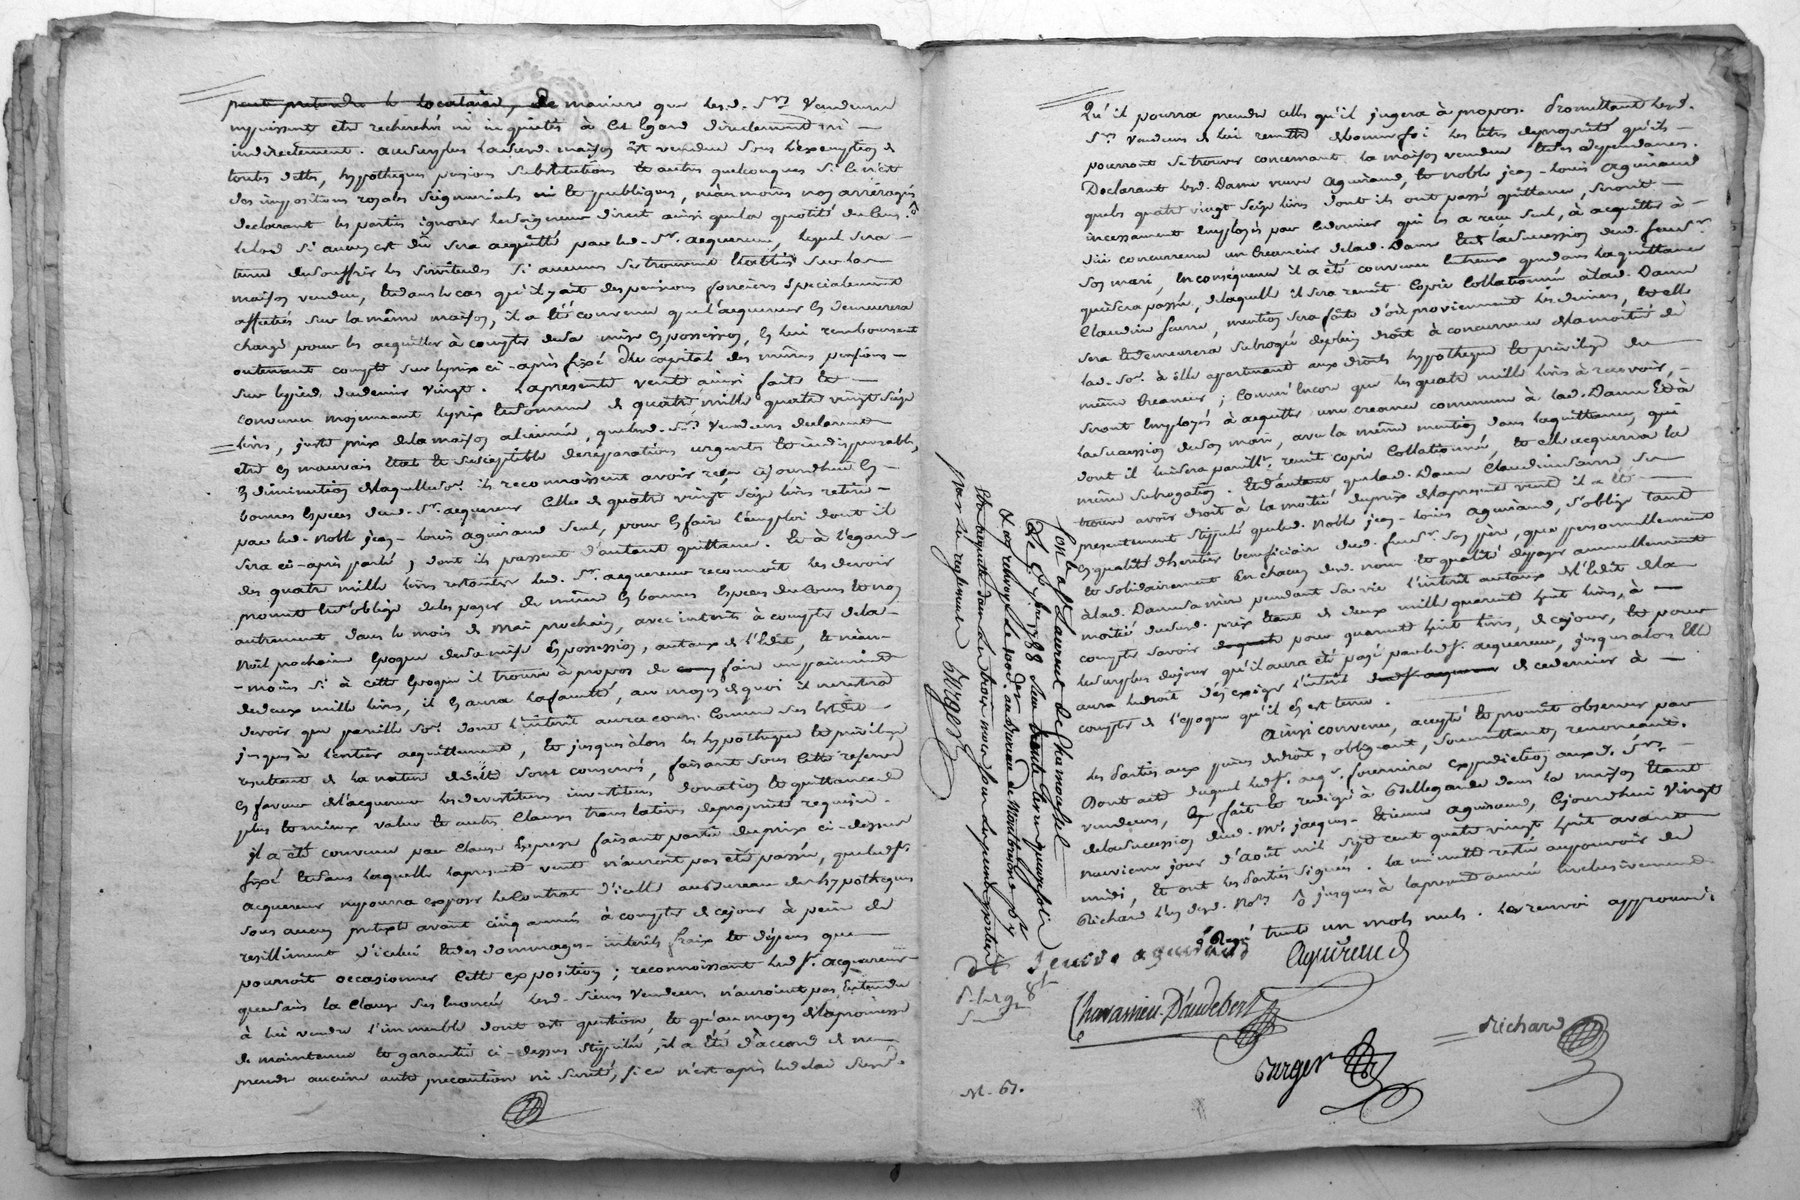 peut pretendre le locataire, de maniere que lesd. Srs Vendeurs
nepuissent etre recherchés ni inquietés à cet Egard directement ni
indirectement. ausurplus laditte maison est vendue sous l'exemption de
toutes dettes, hypotheques pensions substitutions et autres quelconques si ce n'est
des impositions royales seigneuriales et publiques, néanmoins nos arréragés
declarant les parties ignorer leseigneur direct ainsi quela quotité du cens
lelod si aucun est dû sera acquitté par led. Sr. acquereur, lequel sera
tenu desouffrir les servitudes si aucunes setrouvent Etablies sur la
maison vendue, et dans le cas qu'il y ait des pensions foncieres specialement
affectées sur la même maison, il a été convenu que l'acquereur en demeurera
chargé pour les acquitter à compter desa mise en possession, en lui
compte sur leprix ci-après fixé du capital des mêmes pensions
sur lepied dudenier vingt. Lapresente vente ainsi faite et
convenue moyennant leprix et somme de quatre mille quatre vingt seize
livres, juste prix delamaison alienée, quelesd. Srs Vendeurs declarent
etre en mauvais Etat et susceptible dereparations urgentes et indispensables,
en diminution delaquelle so. ils reconnoissent avoir reçu cejourdhui en
bonnes Especes dud. Sr. acquereur celle de quatre vingt seize livres retirée
par led. noble jean-louis aguiraud seul, pour en faire l'emploi dont il
sera ci-après parlé, dont ils passent d'autant quittance. Et à l'egard
des quatre mille livres restantes led. Sr. acquereur reconnoit les devoir
promet et s'oblige deles payer de même en bonnes Especes ducours et non
autrement dans le mois de Mai prochain, avec interets à compter dela
Noël prochaine Epoque desamise en possession, autaux de l'Edit, et néan-
-moins si à cette Epoque il trouve à propos de faire un paiement
dedeux mille livres, il en aura lafaculté, au moyen de quoi il nerestera
devoir que pareille so. dont l'interet aura cours comme ses est dit
jusques à l'entier acquittement, et jusques alors les hypotheque et privilege
resultent de la nature sont conservés, faisant sous cette reserve
en faveur del'acquereur les devestitures investitures donation et quittance de
plus et mieux value et autres clauses translatives depropriété requises.
il a été convenu par clause Expresse faisant partie duprix ci-dessus
fixé et sans laquelle lapresente vente n'auroit pas été passée, queledit Sr
acquereur nepourra exposer le Contrat d'icelle au Bureau des hypotheques
sous aucun pretexte avant cinq années à compter de cejour à peine de
resiliment d'icelui et des dommages-interets fraix et dépens que
pourroit occasionner cette exposition; reconnoissant led. Sr. acquereur
quesans la clause ses Enoncée lesd. sieurs Vendeurs n'auroient pas Entendu
à lui vendre l'immeuble dont est question, et qu'au moyen delapromesse
de maintenue et garantie ci-dessus stipulée, il a été d'accord de ne
prendre aucune autre precaution ni sureté, si ce n'est après ledelai
Qu'il pourra prendre celles qu'il jugera à propos. Promettant lesd.
Srs vendeurs de lui remettre debonne foi les titres depropriété qu'ils
pourront se trouver concernant la maison vendue et ses dependances.
Declarant lesd. Dame veuve aguiraud, et noble jean-louis aguiraud
queles quatre vingt seize livres dont ils ont passé quittance, seront
incessament Employés par cedernier qui les a reçu seul, à acquitter à
due concurrence un creancier delad. Dame et de lasuccession dud. feu Sr.
son mari, En conséquence il a été convenu Entreux quedans laquittance
quisera passée, delaquelle il sera remit Copie Collationnée alad. Dame
Claudine faure, mention sera faite d'où proviennent les deniers, et elle
sera et demeurera subrogée deplein droit à concurrence delamoitié de
lad. So. à elle appartenant aux droits hypotheque et privilege du
même Creancier; comme Encore que les quatre mille livres à recevoir,
seront Employés à acquitter une creance commune à lad. Dame et à
lasuccession deson mari, avec la même mention dans laquittance, qui
dont il luisera pareillt. remit copie Collationnée, et elle acquerra la
même subrogation. Et d'autant que lad. Dame Claudine faure se
trouve avoir droit à la moitié duprix delapresente vente il a été
presentement stipulé queled. Noble jean-louis aguiraud, s'oblige tant
en qualité d'heritier beneficiaire dud. feu Sr. son père, que personnellement
et solidairement En chacun desd. noms et qualité depayer annuellement
àlad. Dame sa mère pendant sa vie l'interet autaux del'Edit dela
moitié dud. prix Etant de deux mille quarente huit livres, à
compter savoir pour quarente huit livres, de cejour, et pour
lesurplus dujour qu'il aura été payé par led. Sr. acquereur, jusques alors Elle
aura ledroit d'en exiger l'interet de cedernier à
compter de l'epoque qu'il en est tenu.
Ainsi convenu, accepté et promit observer par
les Parties aux peines dedroit, obligeant, soumettant, renonceant.
Dont acte duquel led. Sr. acqr. fournira expedition auxd. Srs.
vendeurs, fait et redigé à Bellegarde dans la maison Etant
delasuccession dud. Mr. jacques-Etienne aguiraud, Cejourdhui Vingt
neuvieme jour d'août mil sept cent quatre vingt huit avant
midi, Et ont les Parties signés. la minutte restée aupouvoir de
Richard l'un desd. Nores jusques à lapresente année inclusivement
trente un mots nuls. le renvoi approuvé.
faure veuve aguiraud Aguiraud
Chavassieu-D'audebert
Richard
Burger
M. 61.
Con. a St Laurent de Chamousset
Le 7. bre 1788 Reçu trente une quinze sols
& au renvoi Le 100e d. au Bureau de Montbrison
Et laquitte dans les trois mois sur les peines portées
par le reglement Burger